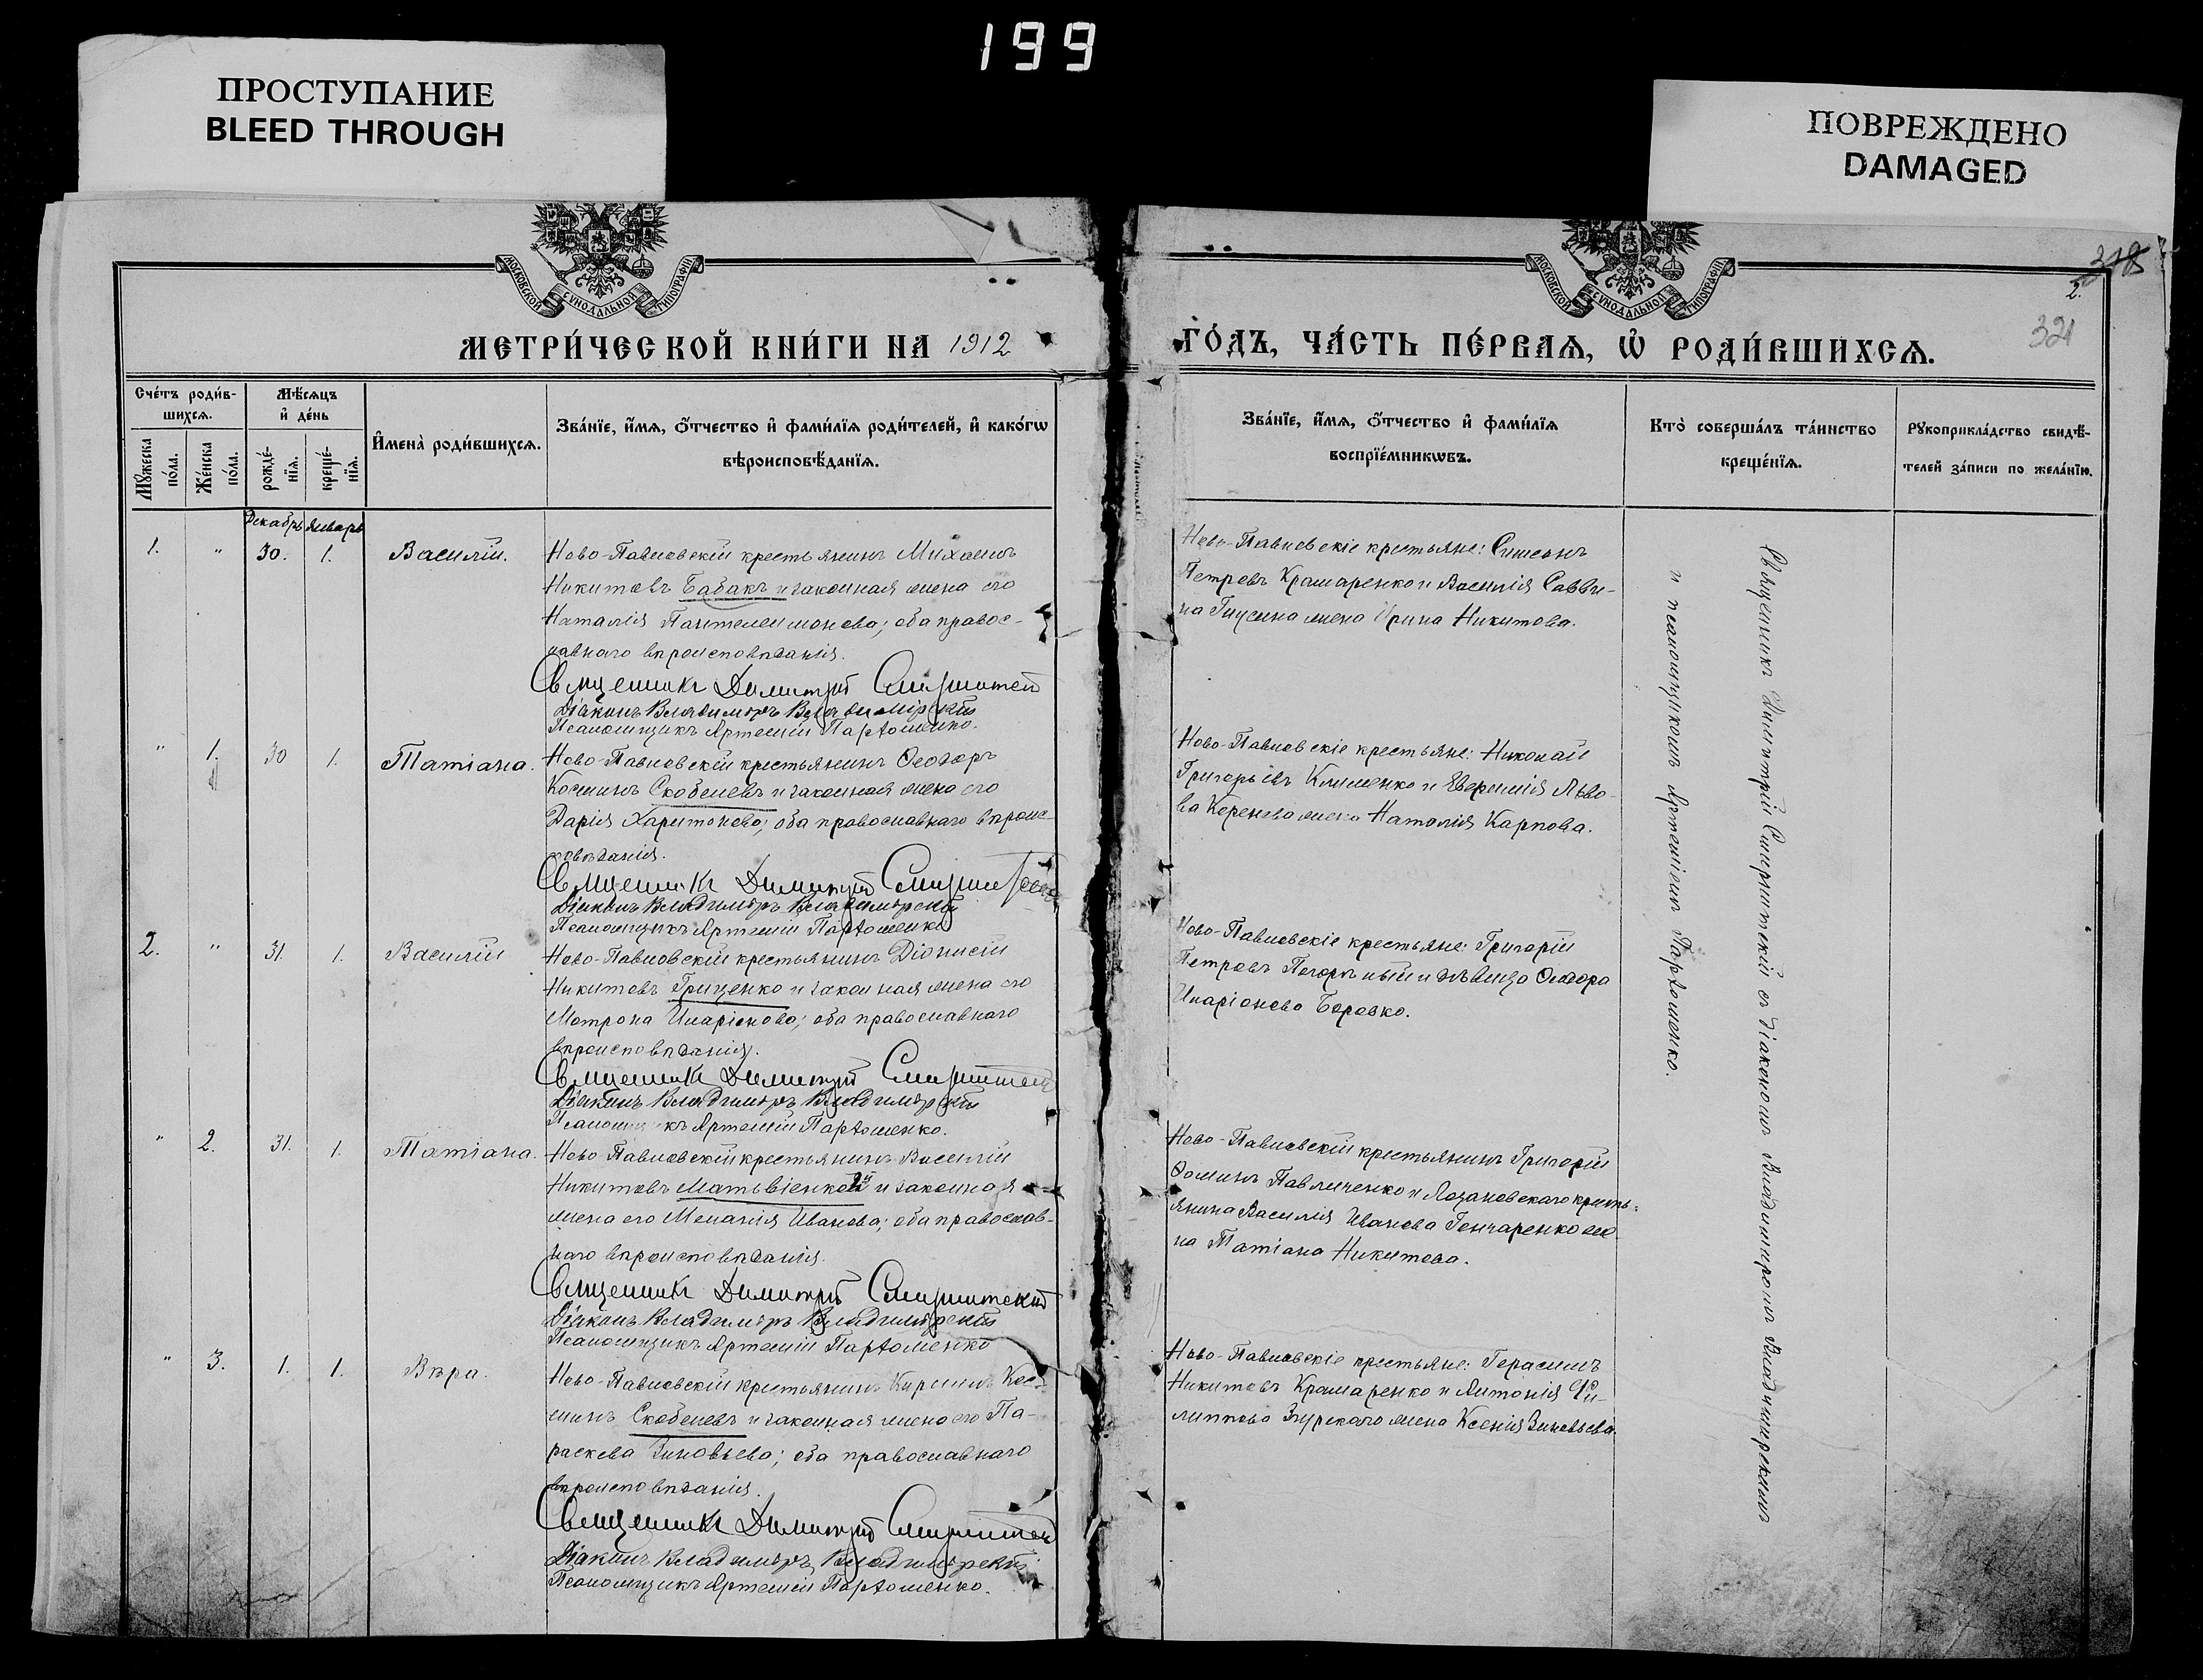 199
ПРОСТУПАНИЕ
BLEED THROUGH
ПОВРЕЖДЕНО
DAMAGED
МОСКОВСКОЙ СѴНОДАЛЬНОЙ ТИПОГРАФІИ
МОСКОВСКОЙ СѴНОДАЛЬНОЙ ТИПОГРАФІИ
318
2.
321
МЕТРИ́ЧЕСКОЙ КНИ́ГИ НА 1912
ГО́ДЪ, ЧА́СТЬ ПЕ́РВАѦ, Ѡ҆ РОДИ́ВШИХСѦ.
Сче́тъ роди́в-
шихсѧ.
Мѣ́сѧцъ
и҆ де́нь
Мꙋжеска
по́ла.
Же́нска
по́ла.
рожде́-
нїѧ.
креще́-
нїѧ.
И҆мена̀ роди́вшихсѧ.
Зва́нїе, и҆́мѧ, ѻ҆́тчество и҆ фами́лїѧ роди́телей, и҆ како́гѡ
вѣроисповѣ́данїѧ.
Зва́нїе, и҆́мѧ, ѻ҆́тчество и҆ фами́лїѧ
воспрїе́мникѡвъ.
Кто̀ соверша́лъ та́инство
креще́нїѧ.
Рꙋкоприкла́дство свидѣ́-
телей за́писи по жела́нїю.
Декабрь Январь
1. " 30. 1. Василій.
Ново-Павловскій крестьянинъ Михаилъ
Никитовъ Бабакъ и законная жена его
Наталія Пантелеимонова; оба правос-
лавнаго вѣроисповѣданія.
Священникъ Димитрій
Діаконъ Владиміръ Владимірскій
Псаломщикъ Артемій Пархоменко.
Ново-Павловскіе крестьяне: Симеонъ
Петровъ Крамаренко и Василія Савви-
на жена Ирина Никитова.
" 1. 30 1. Татіана.
Ново-Павловскій крестьянинъ Ѳеодоръ
Косминъ Скобелевъ и законная жена его
Дарія Харитонова; оба православнаго вѣроис-
повѣданія.
Священникъ Димитрій
Діаконъ Владиміръ Владимірскій
Псаломщикъ Артемій Пархоменко
Ново-Павловскіе крестьяне: Николай
Григорьевъ Клименко и Евѳимія Льво-
ва жена Наталія Карпова.
2. " 31. 1. Василій
Ново-Павловскій крестьянинъ Діонисій
Никитовъ Грищенко и законная жена его
Матрона Иларіонова; оба православнаго
вѣроисповѣданія.
Священникъ Димитрій
Діаконъ Владиміръ Владимірскій
Псаломщикъ Артемій Пархоменко.
Ново-Павловскіе крестьяне: Григорій
Петровъ и дѣвица Ѳеодора
Иларіонова
" 2. 31. 1. Татіана.
Ново-Павловскій крестьянинъ Василій
Никитовъ Матвіенко и законная
жена его Меланія Иванова; оба православ-
наго вѣроисповѣданія.
Священникъ Димитрій
Діаконъ Владиміръ Владимірскій
Псаломщикъ Артемій Пархоменко
Ново-Павловскій крестьянинъ Григорій
Ѳоминъ Павличенко и Лозановскаго кресть-
янина Василія Иванова Гончаренко же-
на Татіана Никитова.
" 3. 1. 1. Вѣра.
Ново-Павловскій крестьянинъ Кириллъ Кос-
минъ Скобелевъ и законная жена его Па-
раскева Зиновьева; оба православнаго
вѣроисповѣданія.
Священникъ Димитрій
Діаконъ Владиміръ Владимірскій
Псаломщикъ Артемій Пархоменко.
Ново-Павловскіе крестьяне: Герасимъ
Никитовъ Крамаренко и Антонія Фи-
липпова Згурскаго жена Ксенія Зиновьева.
Священникъ Димитрій съ діакономъ Владиміромъ Владимірскимъ
и псаломщикомъ Артеміемъ Пархоменко.